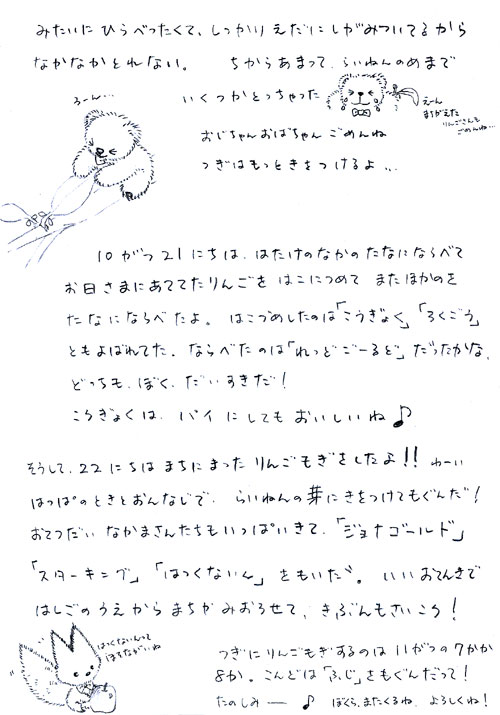 みたいに ひらべったくて、しっかり えだに しがみついてるから
なかなかとれない。 ちからあまって、らいねんのめまで
いくつかとっちゃった
うーん…
えーん
まちがえた
りんごさんも
ごめんね…
おじちゃんおばちゃん ごめんね
つぎはもっときをつけるよ…
10がつ21にちは、はたけのなかのたなにならべて
お日さまにあててたりんごを はこにつめて またほかのを
たなにならべたよ。はこづめしたのは「こうぎょく」「ろくごう」
ともよばれてた。ならべたのは「れっどごーるど」だったかな、
どっちも、ぼく、だいすきだ!
こうぎょくは、パイにしてもおいしいね♪
そうして、22にちは まちにまった りんごもぎをしたよ!! わーい
はっぱのときとおんなじで、らいねんの芽にきをつけてもぐんだ!
おてつだい なかまさんたちもいっぱいきて、「ジョナゴールド」
「スターキング」「はっくないん」をもいだ。いいおてんきで
はしごのうえから まちがみおろせて、きぶんもさいこう!
はっくないんって
はちなかいね
つぎにりんごもぎするのは11がつの7かか
8か。こんどは「ふじ」をもぐんだって!
たのしみー♪ ぼくら、またくるね、よろしくね!